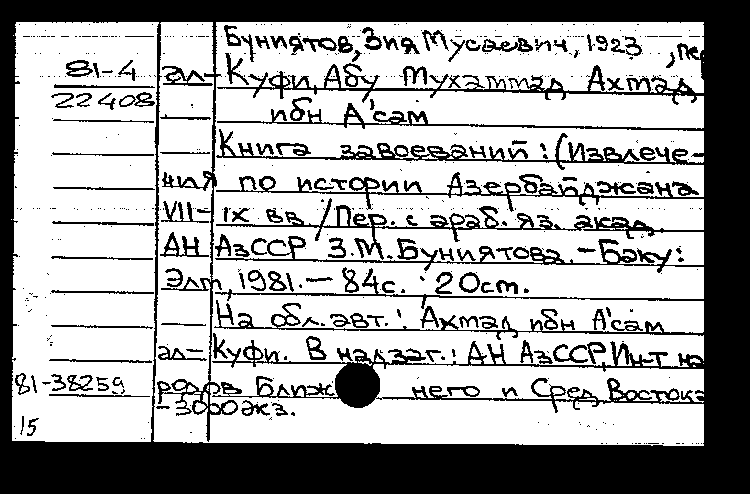 Буниятов, Зия Мусаевич, 1923 , пер
81-4 ал- Куфи, Абу Мухаммад Ахмад
22408 ибн А'сам
Книга завоеваний : (Извлече-
ния по истории Азербайджана
VII- IX вв / Пер. с араб. яз. акад.
АН АзССР З.М. Буниятова. - Баку:
Элм, 1981. - 84с. ; 20см.
На обл. авт. : Ахмад ибн А'сам
ал- Куфи. В надзаг. : АН АзССР, Ин-т на
81-38259 родов Ближ него и Сред. Востока
- 3000экз.
15